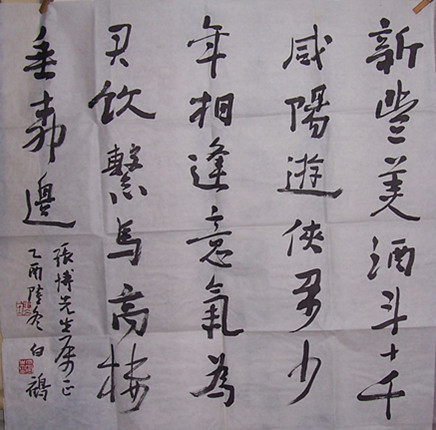 新豐美酒斗十千
咸陽遊俠多少
年相逢意氣為
君飲繫馬高樓
垂柳邊
張博先生屬正
乙酉隆冬 白